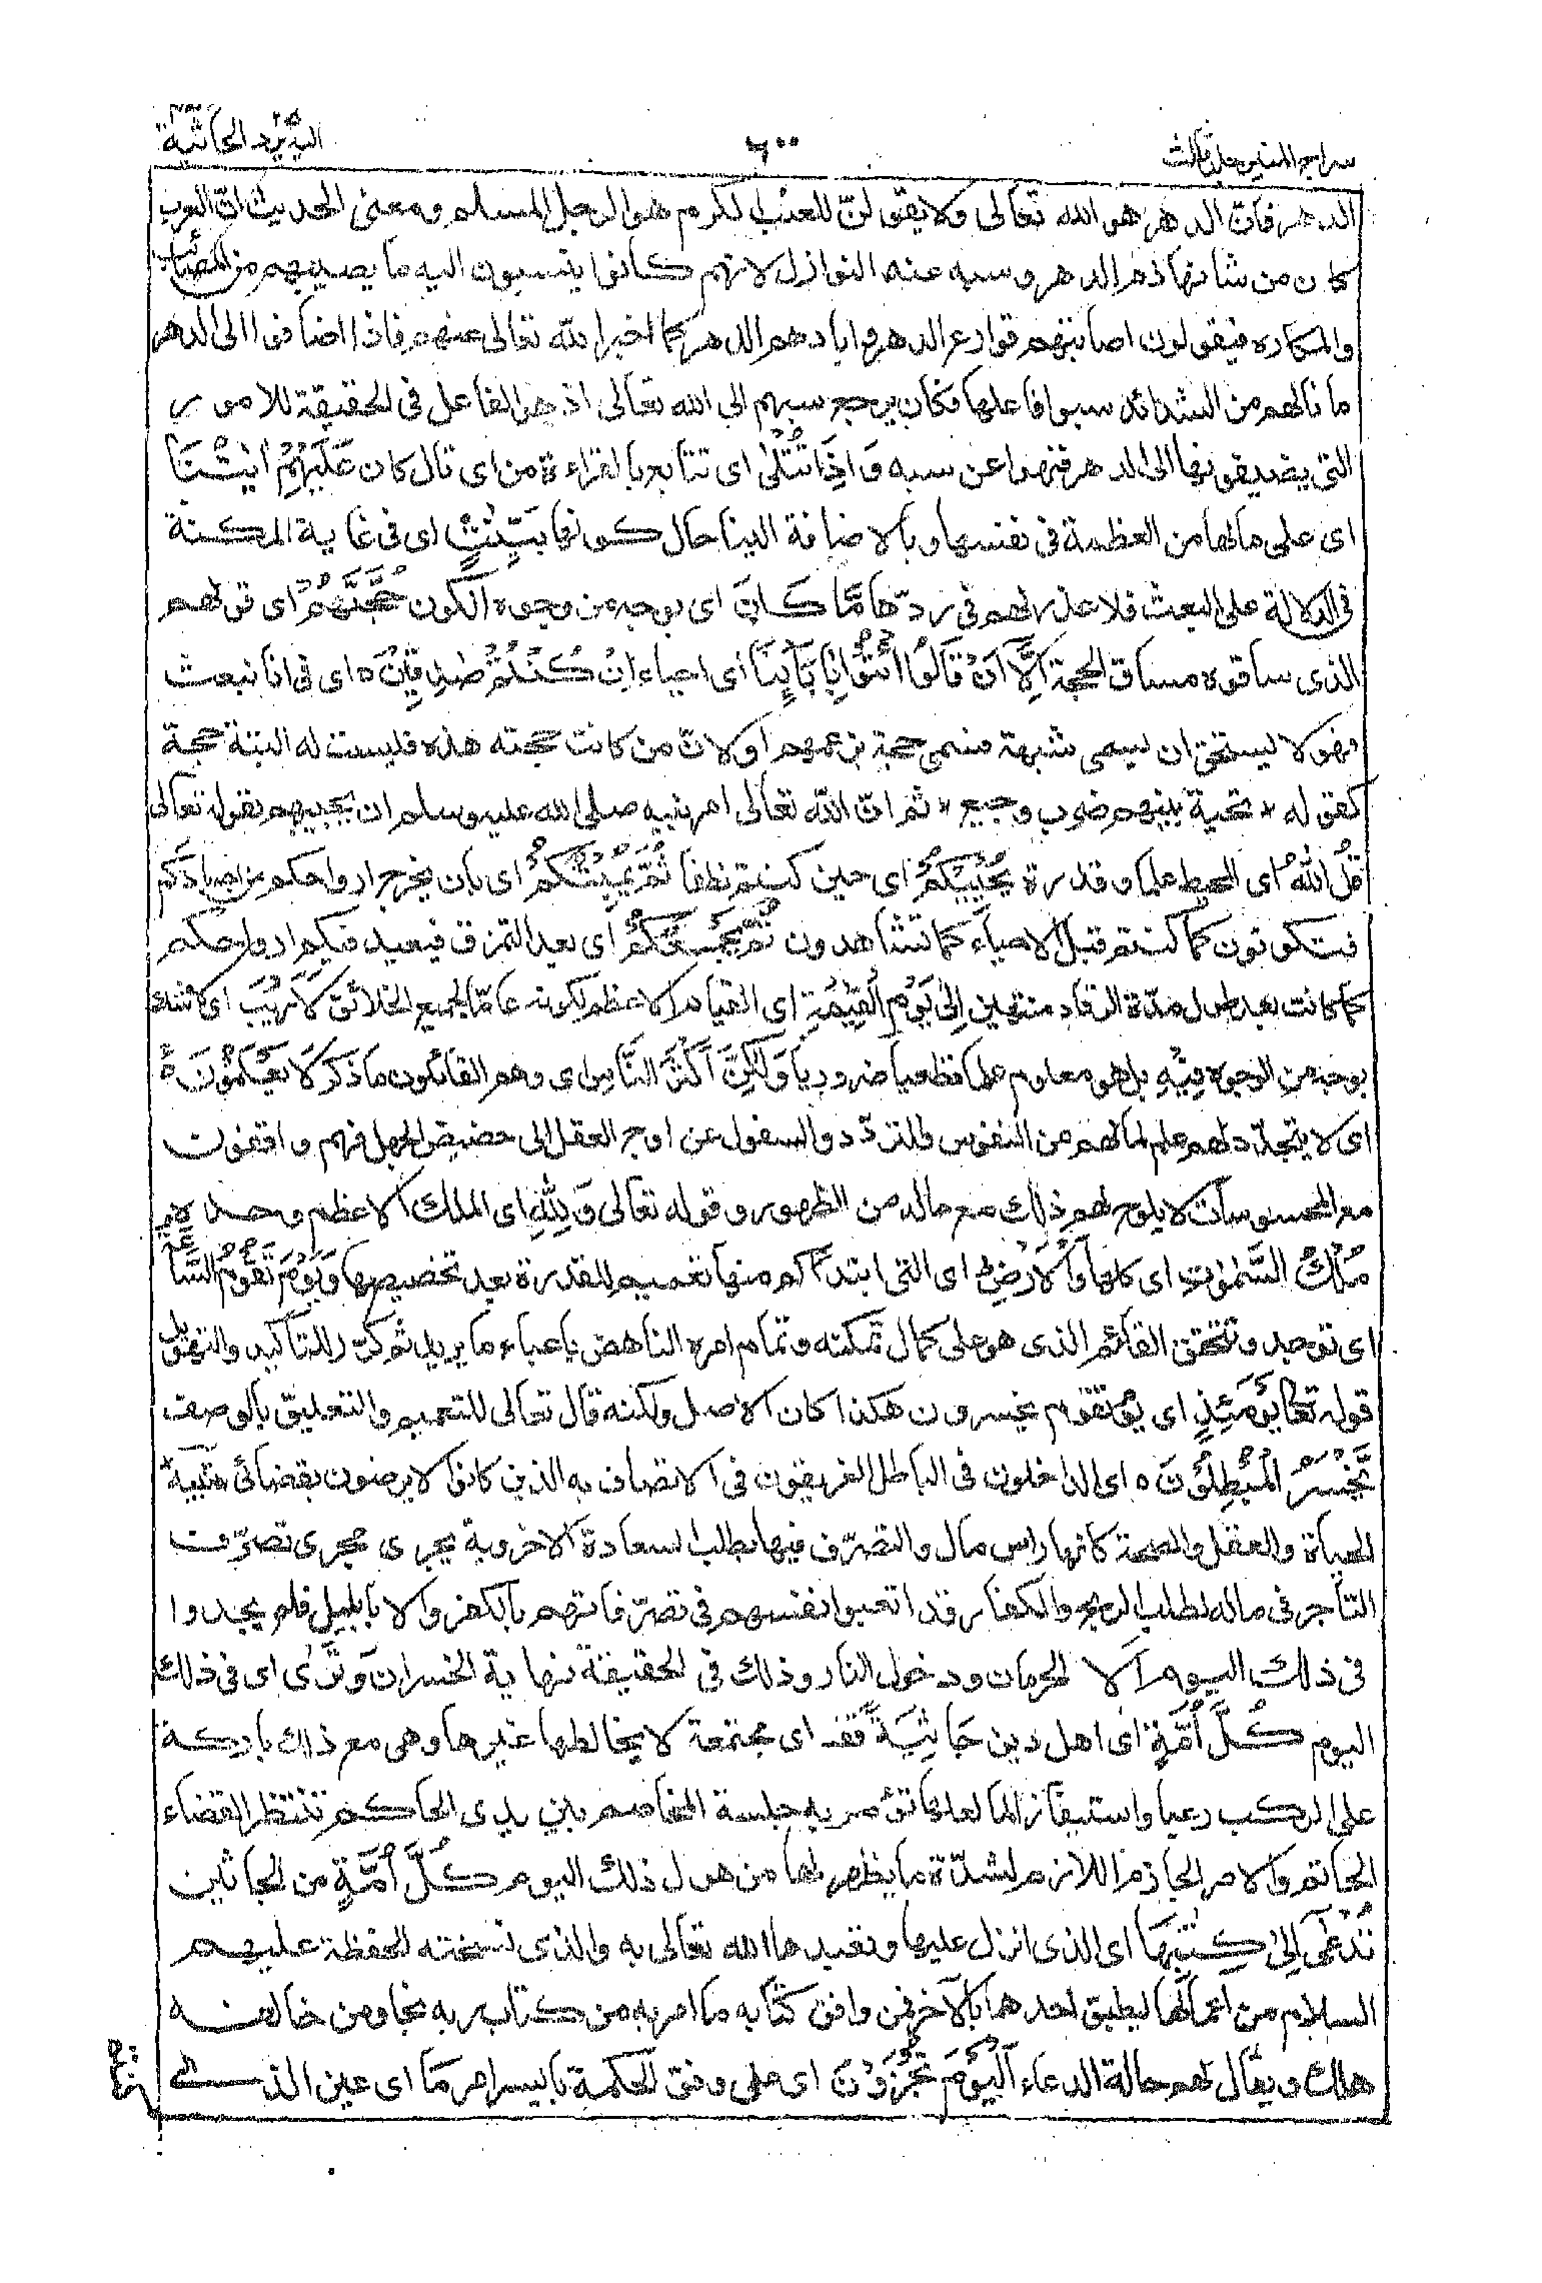 سراج المنير جلد ثالث
٦٠٠
اليه يرد الجاثية
الدهر فان الدهر هو الله تعالى ولا يقولن للعنب الكرم هو الرجل المسلم ومعنى الحديث ان العرب
كان من شانها ذم الدهر وسبه عند النوازل لانهم كانوا ينسبون اليه ما يصيبهم من المصائب
والمكاره فيقولون اصابتهم قوارع الدهر وابادهم الدهر كما اخبر الله تعالى عنهم فاذا اضافوا الى الدهر
ما نالهم من الشدائد سبوا فاعلها فكان يرجع سبهم الى الله تعالى اذ هو الفاعل فى الحقيقة للامور
التى يضيفونها الى الدهر فنهوا عن سبه وَاِذَا تُتْلٰى اى تتابع بالقراءة من اى تال كان عَلَيْهِمْ اٰيٰتُنَا
اى على مالها من العظمة فى نفسها وبالاضافة الينا حال كونها بَيِّنٰتٍ اى فى غاية المكنة
فى الدلالة على البعث فلا عذر لهم فى ردّها مَّا كَانَ اى بوجه من وجوه الكون حُجَّتَهُمْ اى قولهم
الذى ساقوه مساق الحجة اِلَّآ اَنْ قَالُوا ائْتُوْا بِاٰبَآئِنَآ اى احياء اِنْ كُنْتُمْ صٰدِقِيْنَ ه اى فى انا نبعث
فهو لا يستحق ان يسمى شبهة فسمى حجة بزعمهم او لانّ من كانت حجته هذه فليست له البتة حجة
كقوله * تحية بينهم ضرب وجيع * ثم انّ الله تعالى امر نبيه صلى الله عليه وسلم ان يجيبهم بقوله تعالى
قُلِ اللّٰهُ اى المحيط علما وقدرة يُحْيِيْكُمْ اى حين كنتم نطفا ثُمَّ يُمِيْتُكُمْ اى بان يخرج ارواحكم من اجسادكم
فتكونون كما كنتم قبل الاحياء كما تشاهدون ثُمَّ يَجْمَعُكُمْ اى بعد التمزق فيعيد فيكم ارواحكم
كما كانت بعد طول مدّة الرقاد منتهين اِلٰى يَوْمِ الْقِيٰمَةِ اى القيام الاعظم لكونه عامّا لجميع الخلائق لَا رَيْبَ اى لا شك
بوجه من الوجوه فِيْهِ بل هو معلوم علما قطعيا ضروريا وَلٰكِنَّ اَكْثَرَ النَّاسِ اى وهم القائلون ما ذكر لَا يَعْلَمُوْنَ ه
اى لا يتجدّد لهم علم لما لهم من النفوس والتردّد والسفول عن اوج العقل الى حضيض الجهل فهم واقفون
مع المحسوسات لا يلوح لهم ذلك مع ماله من الظهور وقوله تعالى وَلِلّٰهِ اى الملك الاعظم وحده
مُلْكُ السَّمٰوٰتِ اى كلها وَالْاَرْضِ ط اى التى ابتدأكم منها تعميم للقدرة بعد تخصيصها وَيَوْمَ تَقُوْمُ السَّاعَةُ
اى توجد وتتحقق القائم الذى هو على كمال تمكنه وتمام امره الناهض باعباء ما يريد ثم كرّر للتأكيد والتهويل
قوله تعالى يَوْمَئِذٍ اى يوم تقوم يخسرون هكذا كان الاصل ولكنه قال تعالى للتعميم والتعليق بالوصف
يَّخْسَرُ الْمُبْطِلُوْنَ ه اى الداخلون فى الباطل الغريقون فى الاتصاف به الذين كانوا لا يرضون بقضائى
الحياة والعقل والصحة كانها راس مال والتصرّف فيها بطلب السعادة الاخروية يجرى مجرى تصرّف
التاجر فى ماله لطلب الربح والكفار قد اتعبوا انفسهم فى تصرّفاتهم بالكفر والاباطيل فلم يجدوا
فى ذلك اليوم الا الحرمان ودخول النار وذلك فى الحقيقة نهاية الخسران وَتَرٰى اى فى ذلك
اليوم كُلَّ اُمَّةٍ اى اهل دين جَاثِيَةً قف اى مجتمعة لا يخالطها غيرها وهى مع ذلك باركة
على الركب رعبا واستيفازا لما لعلها تؤمر به جلسة المخاصم بين يدى الحاكم تنتظر القضاء
الحاتم والامر الجازم اللازم لشدّة ما يظهر لها من هول ذلك اليوم كُلُّ اُمَّةٍ من الجاثين
تُدْعٰٓى اِلٰى كِتٰبِهَا اى الذى انزل عليها وتعبدها الله تعالى به والذى نسخته الحفظة عليهم
السلام من اعمالها ليطبق احدهما بالآخر فمن وافق كتابه ما امر به من كتاب ربه نجا ومن خالفه
هلك ويقال لهم حالة الدعاء اَلْيَوْمَ تُجْزَوْنَ اى على وفق الحكمة بايسر امر مَا اى عين الذى